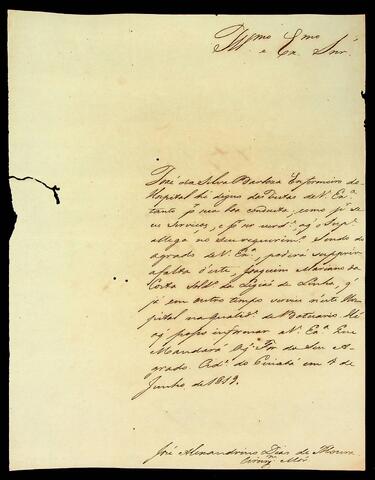 Illmo Exmo
e Ex. Snr.
José da Silva Barboza Enfermeiro do
Hospital hé digno das Vistas de V. Exa.
tanto p. sua boa conduta, como p. se
os Servicos, e p. no q. o Sup.
allega no Seu requerim. Sendo do
agrado de V. Exa., poderá supprir
a falta d'este, Joaquim Mariano da
Costa Sold. de Ligrá de Linha, q.
já em outro tempo servio n'este Hos
pital na qualid. de Boticario. Hé
o q. posso informar a V. Exa. Que
Mandará o q. For do Seu A-
grado. Qd. do em 4 de
Junho de 1819.
José Alexandrino Dias de Moura
Cirurg. Mór